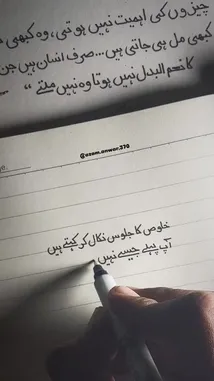 چیزوں کی اہمیت نہیں ہوتی، وہ کبھی
کبھی مل ہی جاتی ہیں... صرف انسان ہیں جن
کا نعم البدل نہیں ہوتا وہ نہیں ملتے “
@azam.anwar.370
خلوص کا جلوس نکال کر کہتے ہیں
آپ پہلے جیسے نہیں